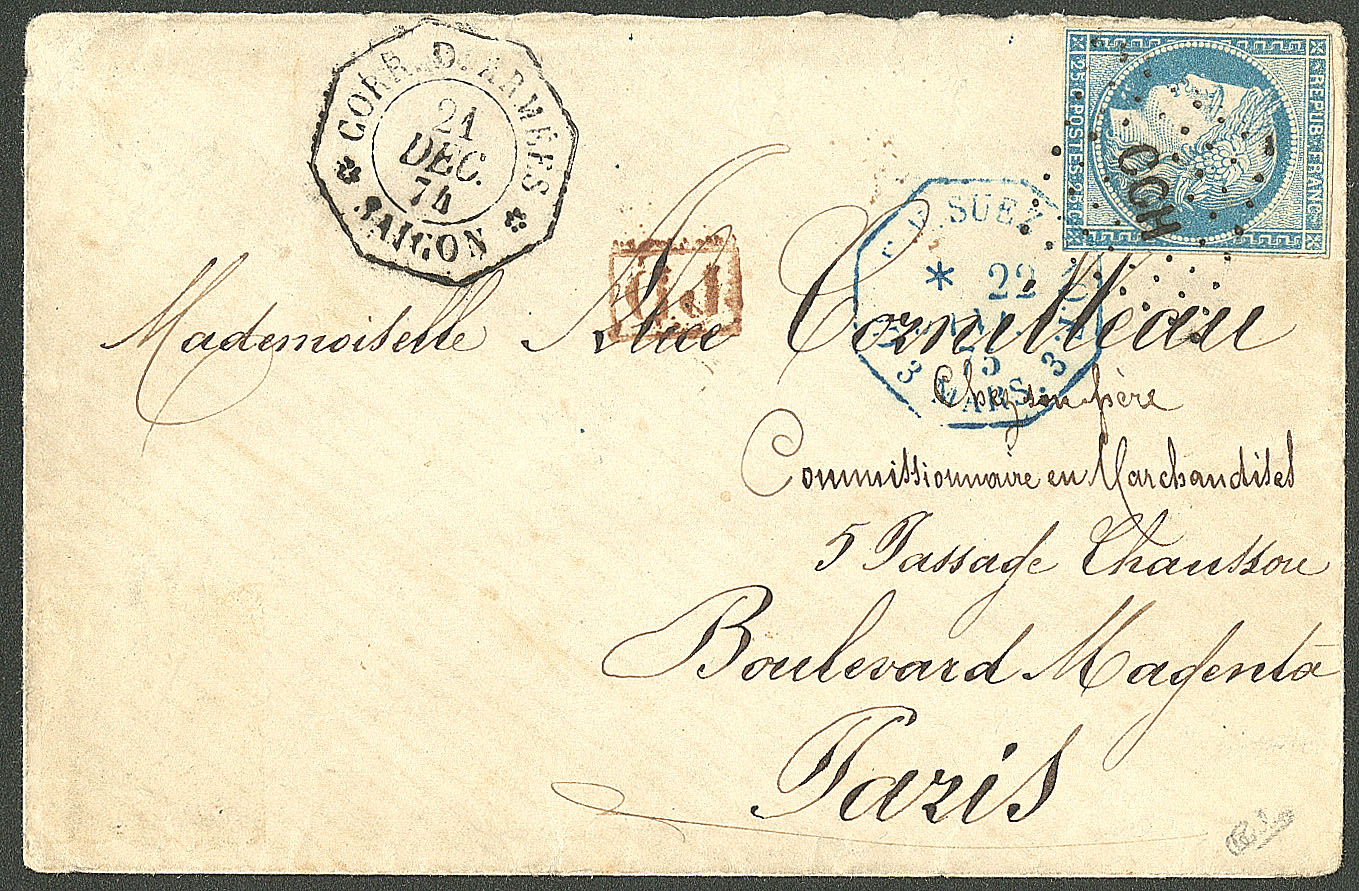 CORR. D. ARMÉES
21
DEC.
74
SAIGON
REPUB FRANC
25 c POSTES 25 c
CCH
SUEZ
22
MARS. 3
P.D.
Mademoiselle Alice Cornilleau
Chez son père
Commissionnaire en Marchandises
5 Passage Chausson
Boulevard Magenta
Paris